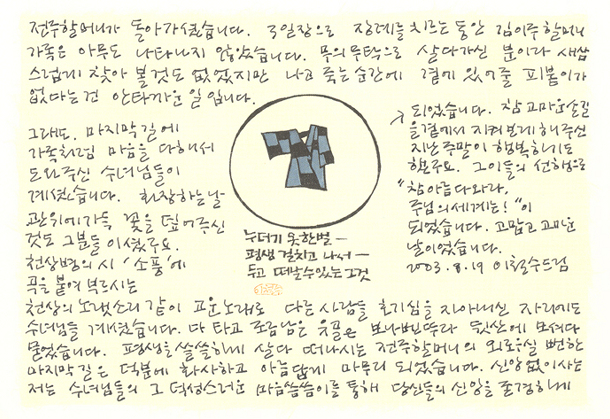 전주할머니가 돌아가셨습니다. 3일장으로 장례를 치르는 동안 김이주할머니
가족은 아무도 나타나지 않았습니다. 무의무탁으로 살다가신 분이라 새삼
스럽게 찾아 볼 것도 없었지만 나고 죽는 순간에 곁에 있어줄 피붙이가
없다는건 안타까운 일입니다.
그래도. 마지막 길에
가족처럼 마음을 다해서
도와주신 수녀님들이
계셨습니다. 화장하는 날
관위에 가득 꽃을 덮어주신
것도 그분들이셨구요.
천상병의 시 '소풍'에
곡을 붙여 부르시는
천상의 노랫소리 같이 고운노래로 다른 사람들 호기심을 자아내신 자리에도
수녀님들 계셨습니다. 다 타고 조금 남은 유골은 보나쁘따라 뒷산에 모셔다
묻었습니다. 평생을 쓸쓸하게 살다 떠나시는 전주할머니의 외로울 뻔한
마지막 길은 덕분에 환사하고 아름답게 마무리 되었습니다. 신앙 없이 사는
저는 수녀님들의 그 덕성스러운 마음씀씀이를 통해 당신들의 신앙을 존경하게
누더기 옷 한벌 —
평생 걸치고 나서 —
두고 떠날 수 있는 그것
되었습니다. 참 고마운 손길
을 곁에서 지켜보게 해주신
지난 주말이 행복하기도
했구요. 그이들의 선행으로
"참 아름다와라,
주님의 세계는!"이
되었습니다. 고맙고 고마운
날이었습니다.
2003.8.19 이철수드림